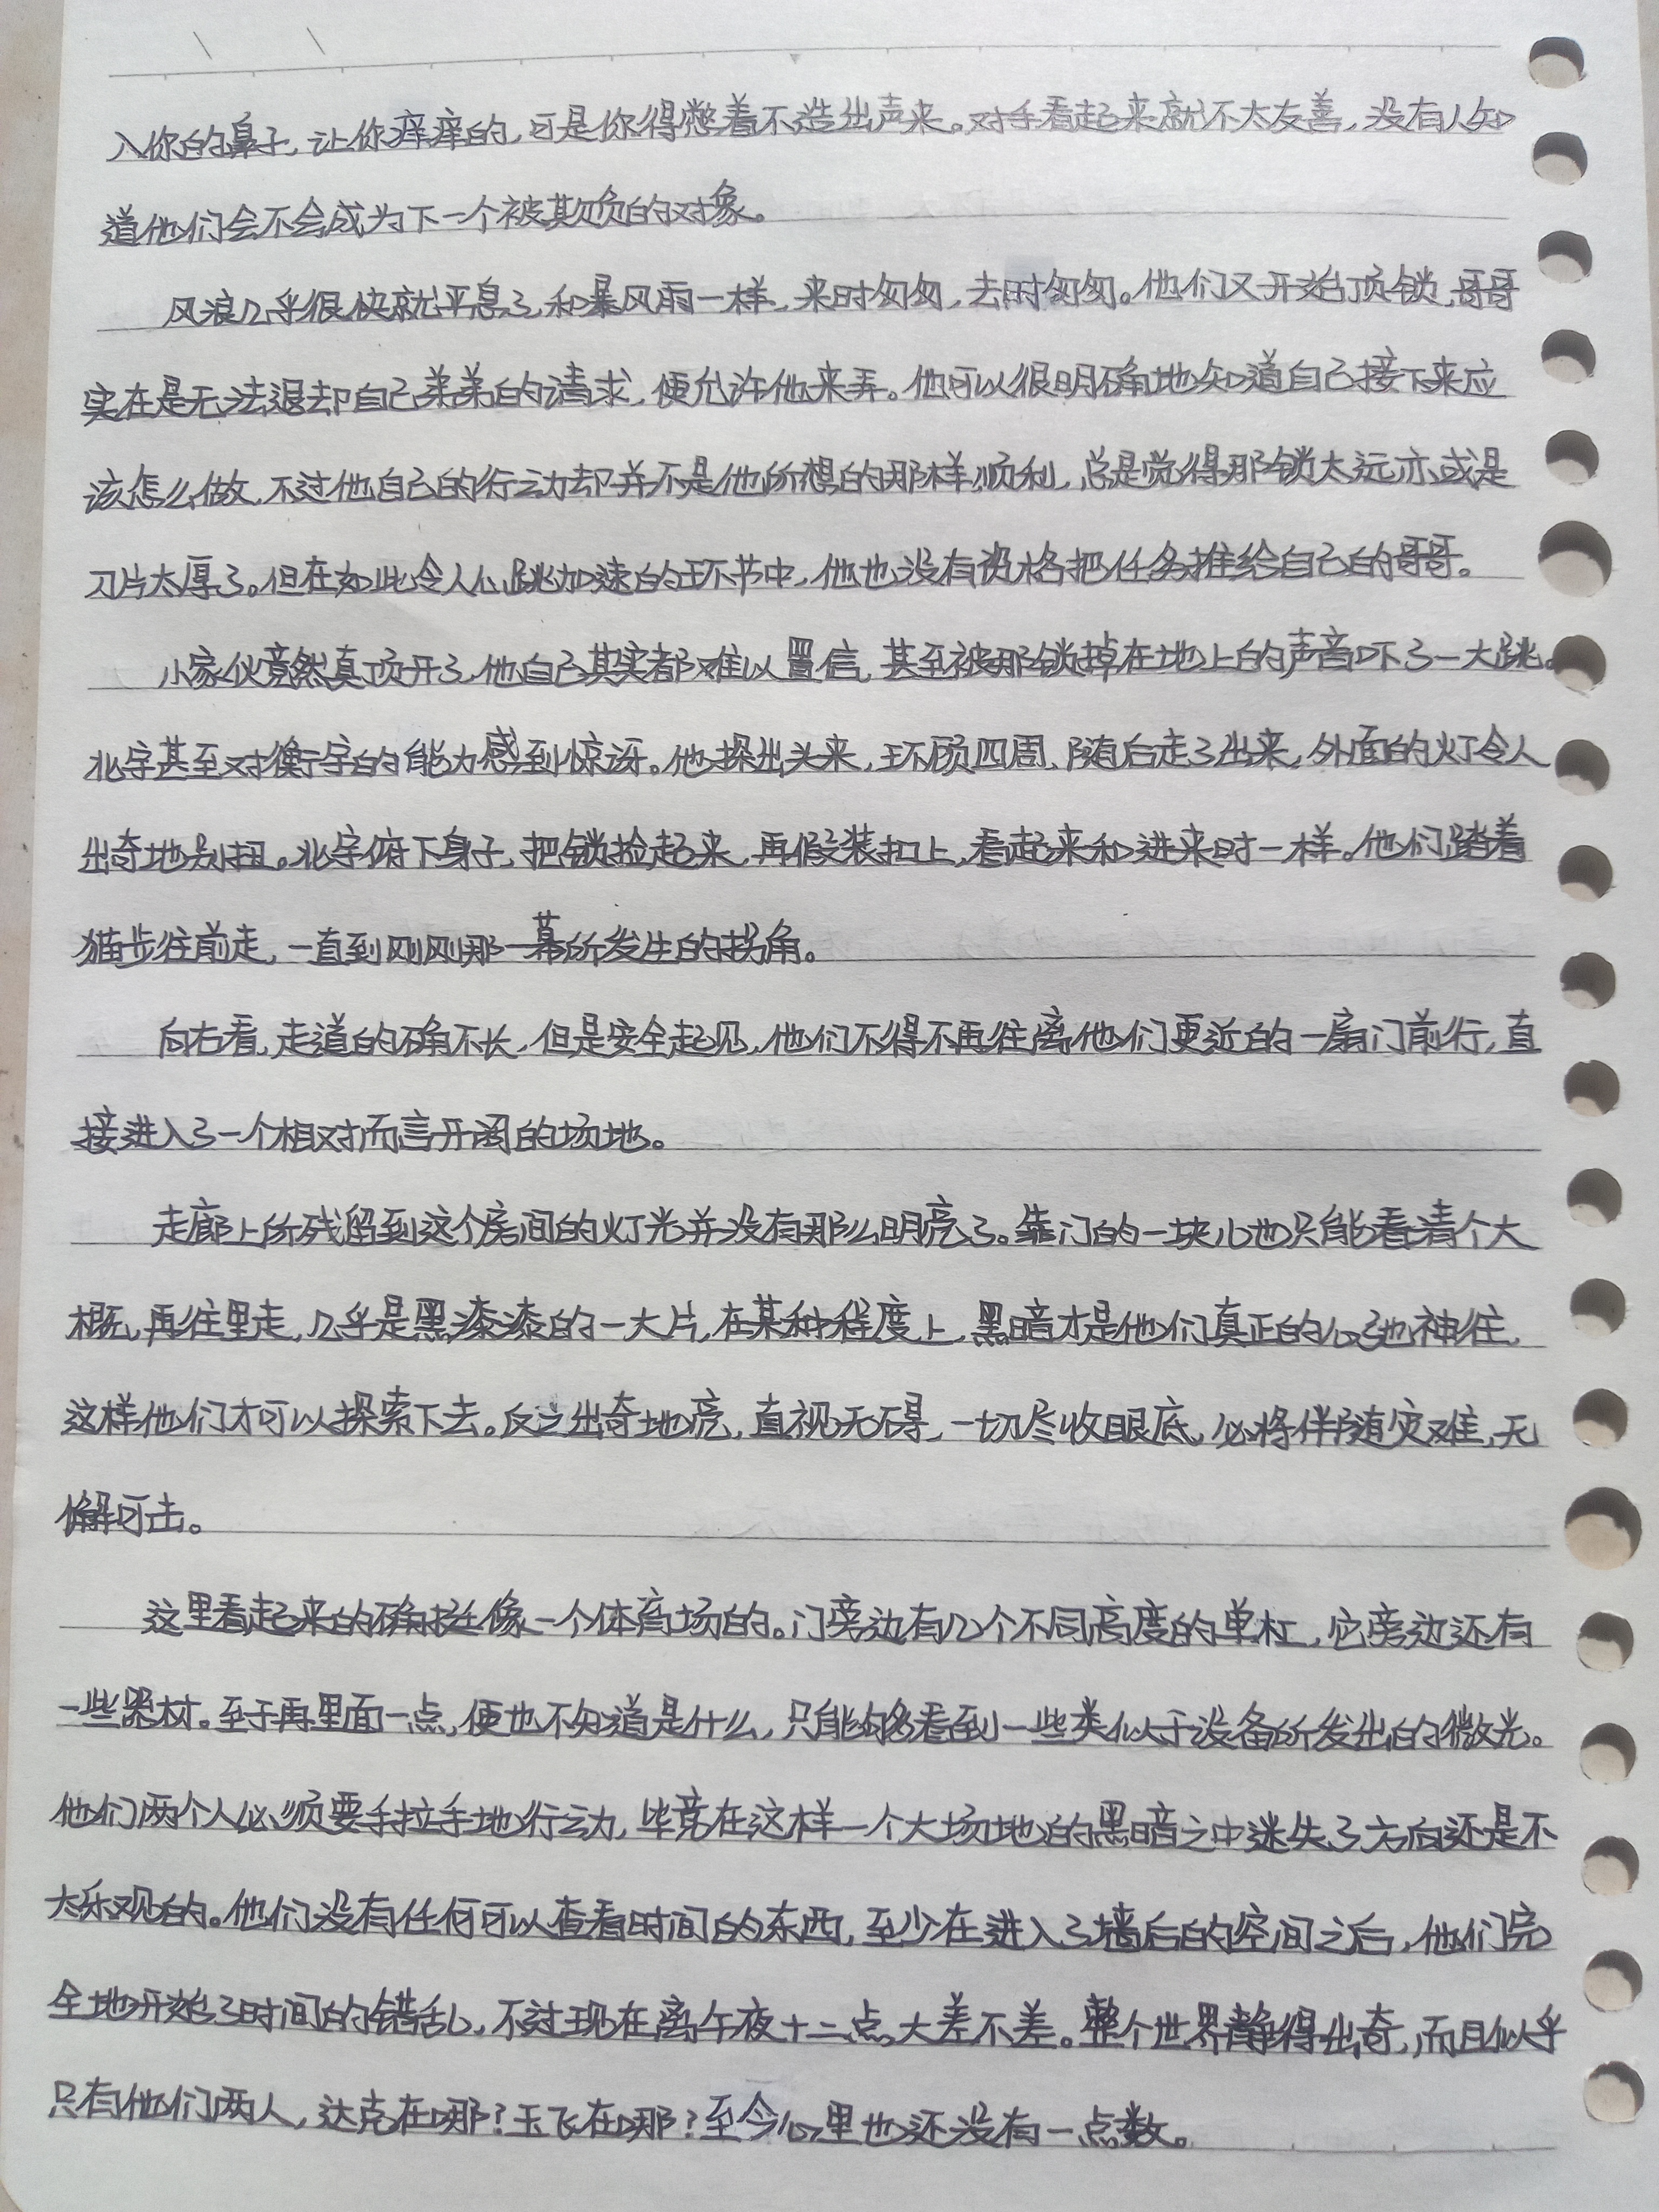 入你的鼻子,让你痒痒的,可是你得憋着不造出声来。对手看起来就不太友善,没有人知
道他们会不会成为下一个被欺负的对象。
风浪几乎很快就平息了,和暴风雨一样,来时匆匆,去时匆匆。他们又开始顶锁,哥哥
实在是无法退却自己弟弟的请求,便允许他来弄。他可以很明确地知道自己接下来应
该怎么做,不过他自己的行动却并不是他所想的那样顺利,总是觉得那锁太远亦或是
刀片太厚了。但在如此令人心跳加速的环节中,他也没有资格把任务推给自己的哥哥。
小家伙竟然真顶开了,他自己其实都难以置信,甚至被那锁掉在地上的声音吓了一大跳。
北字甚至对衡字的能力感到惊讶。他探出头来,环顾四周,随后走了出来,外面的灯令人
出奇地别扭。北字俯下身子,把锁捡起来,再假装扣上,看起来和进来时一样。他们踏着
猫步往前走,一直到刚刚那一幕所发生的拐角。
向右看,走道的确不长,但是安全起见,他们不得不再往离他们更近的一扇门前行,直
接进入了一个相对而言开阔的场地。
走廊上所残留到这个房间的灯光并没有那么明亮了。靠门的一块儿也只能看清个大
概,再往里走,几乎是黑漆漆的一大片,在某种程度上,黑暗才是他们真正的心驰神往,
这样他们才可以探索下去。反之出奇地亮,直视无碍,一切尽收眼底,必将伴随灾难,无
懈可击。
这里看起来的确挺像一个体育场的。门旁边有几个不同高度的单杠,它旁边还有
一些器材。至于再里面一点,便也不知道是什么,只能够看到一些类似于设备所发出的微光。
他们两个人必须要手拉手地行动,毕竟在这样一个大场地的黑暗之中迷失了方向还是不
太乐观的。他们没有任何可以查看时间的东西,至少在进入了墙后的空间之后,他们完
全地开始了时间的错乱,不过现在离午夜十二点大差不差。整个世界静得出奇,而且似乎
只有他们两人,达克在哪?玉飞在哪?至今心里也还没有一点数。